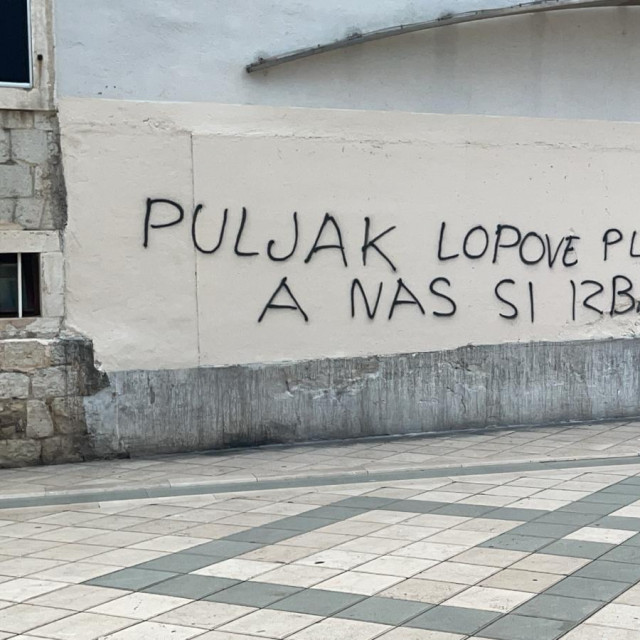 PULJAK LOPOVE PL
A NAS SI IZBA